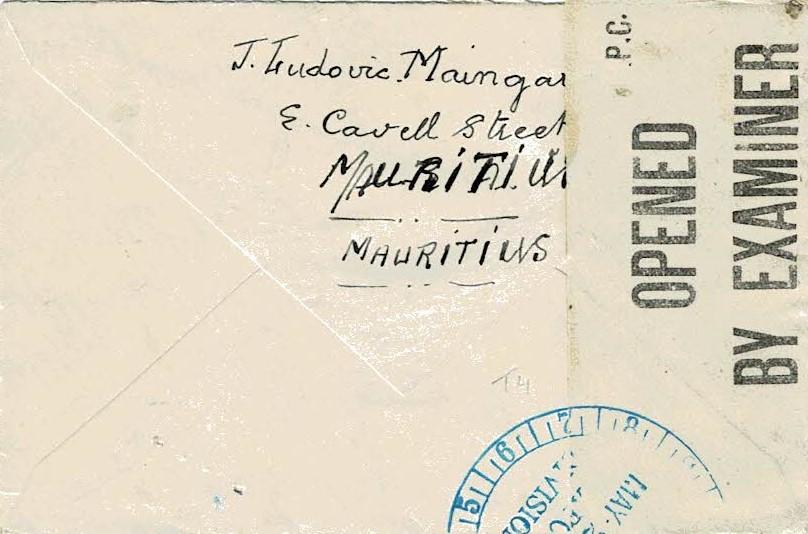 J. Ludovic. Maingar
E. Cavell Street
MAURITIU
MAURITIUS
P.C.
OPENED
BY EXAMINER
T4
5 6 7 8
VISION
MAY